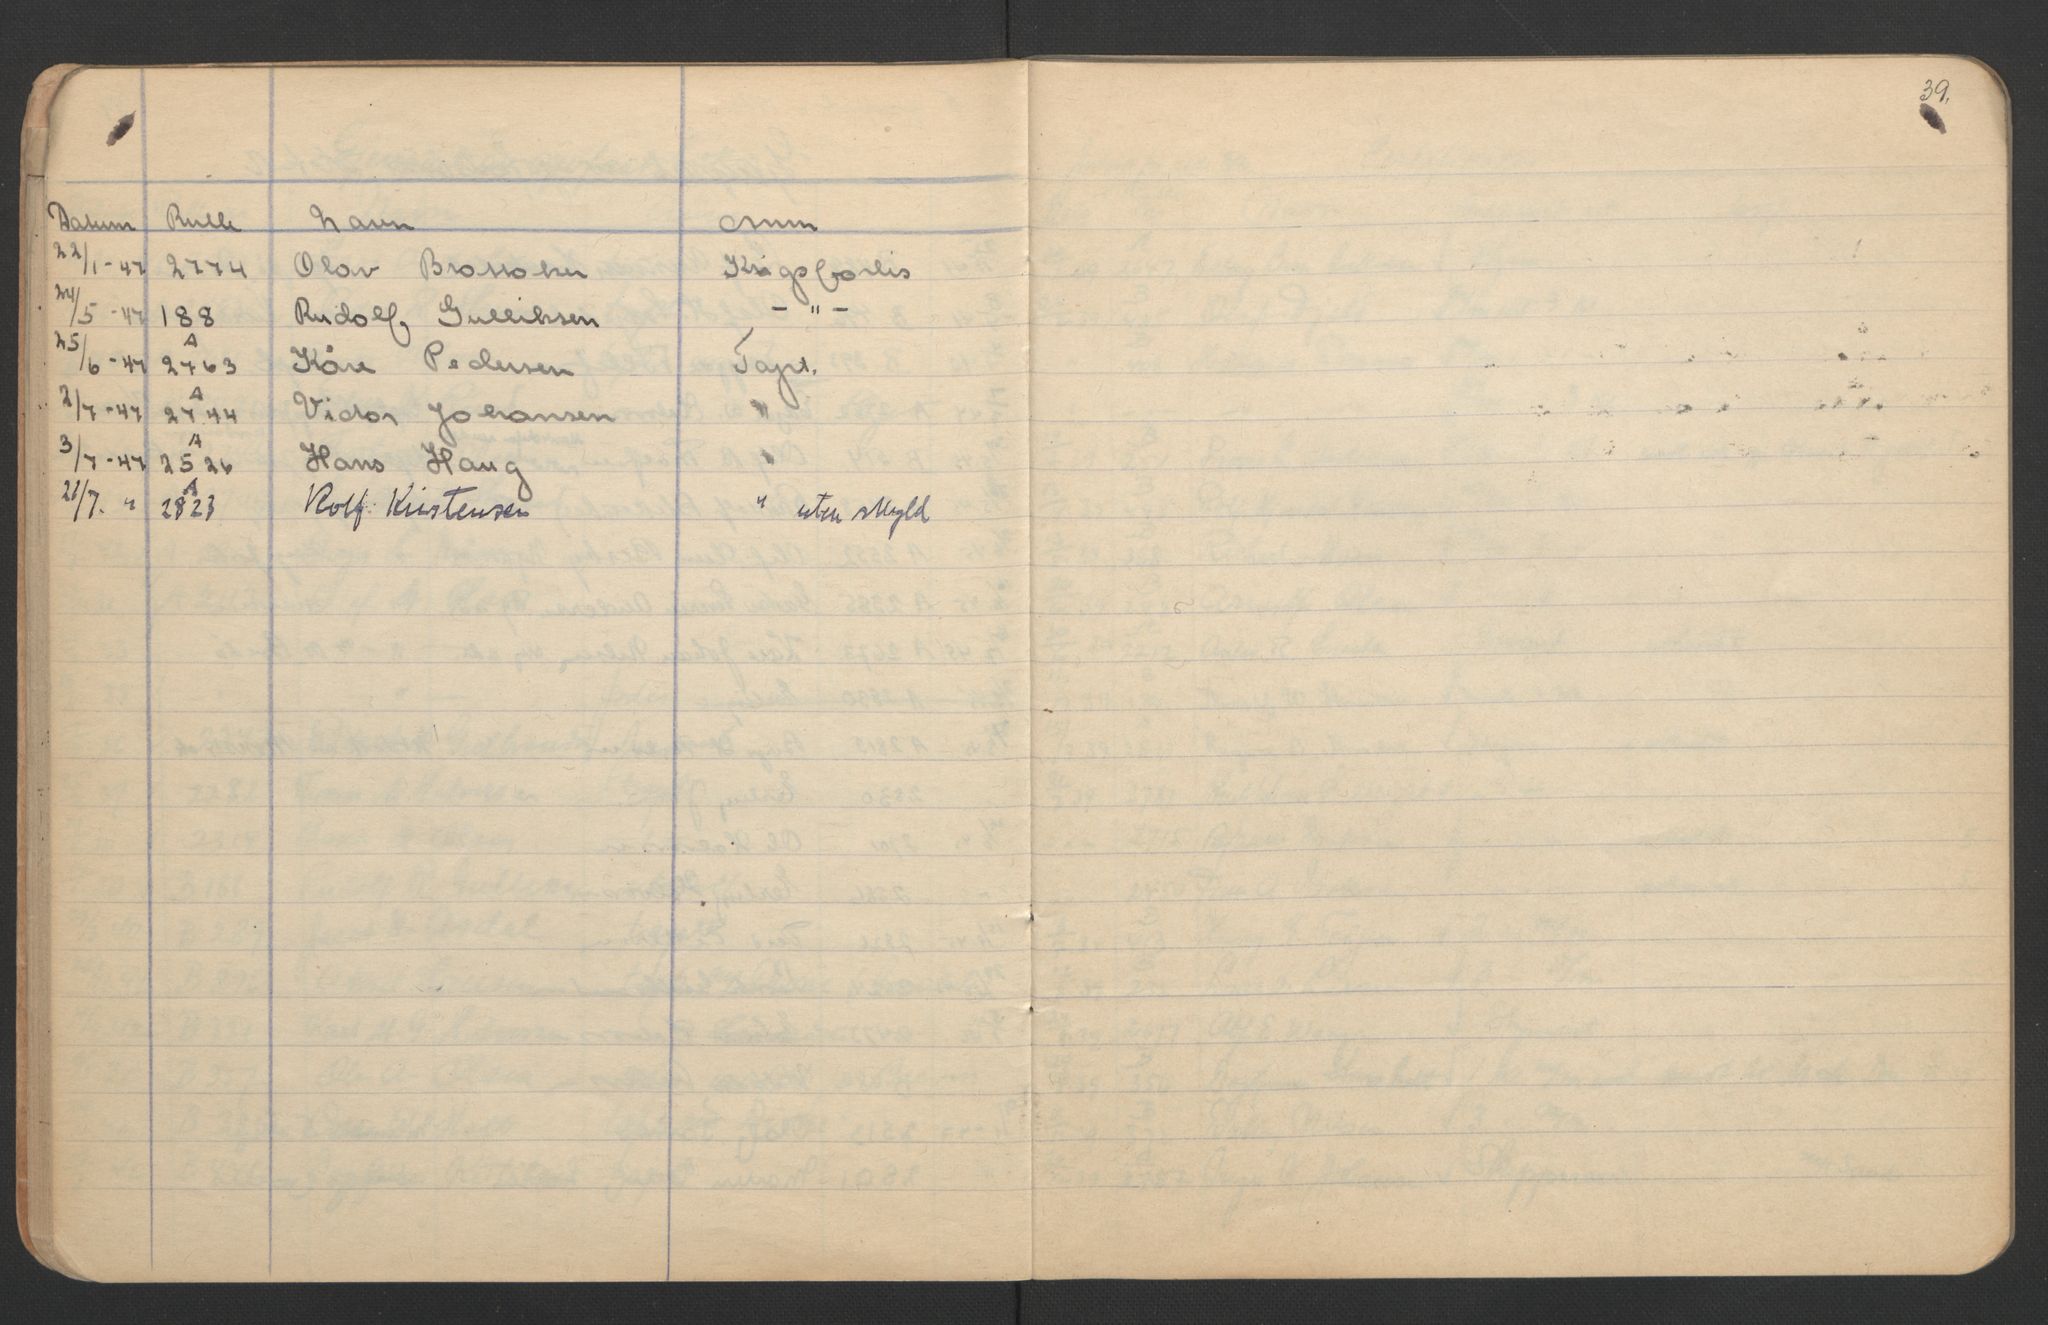 39.
Datum Rulle Navn Anm
22/1-47 2774 Olav Krigsforlis
24/5-47 188 Rudolf Gulliksen - " -
25/6-47 A 2763 Kåre Pedersen Tapt.
2/7-47 A 2744 Victor Johansen "
3/7-47 A 2526 Hans Haug "
21/7. " A 2823 Rolf Kristensen " uten skyld